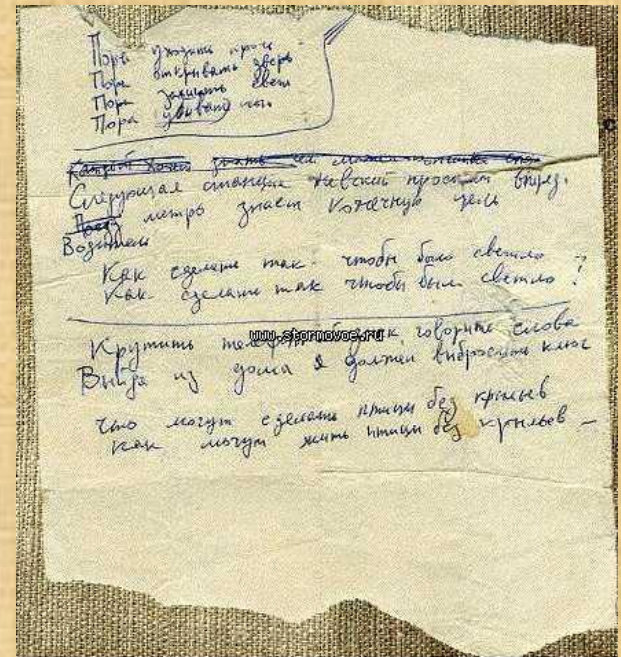 Пора уходить прочь -
Пора открывать дверь
Пора зажигать свет
Пора убивать
Следующая станция Невский проспект вперед.
метро знает конечную цель
Водитель
Как сделать так - чтобы было светло
Как сделать так чтобы было светло ?
www.stornovoe.ru
Крутить говорить слова
Выйдя из дома я должен выбросить ключ
Что могут сделать птицы без крыльев
Как могут жить птицы без крыльев -